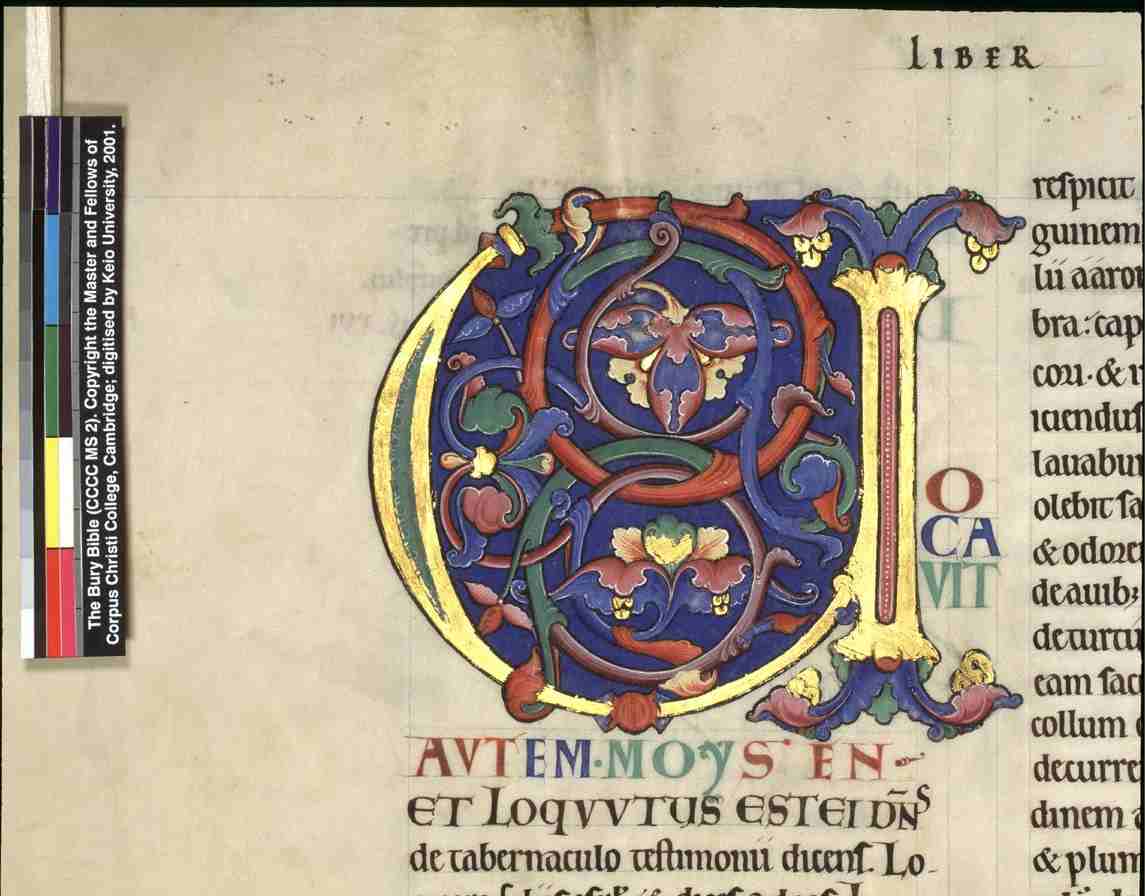 The Bury Bible (CCCC MS 2). Copyright the Master and Fellows of
Corpus Christi College, Cambridge; digitised by Keio University, 2001.
LIBER
V
O
CA
VIT
AVTEM·MOYSEN
ET LOQVVTUS EST EI DN̄S
de tabernaculo testimonii dicens. Lo-
respicit
guinem
lii aaron
bra: cap
cori· &
iacenduſ
lauabun
olebit sa
& odore
de auib;
de turtu
eam sac
collum
decurre
dinem
& plum